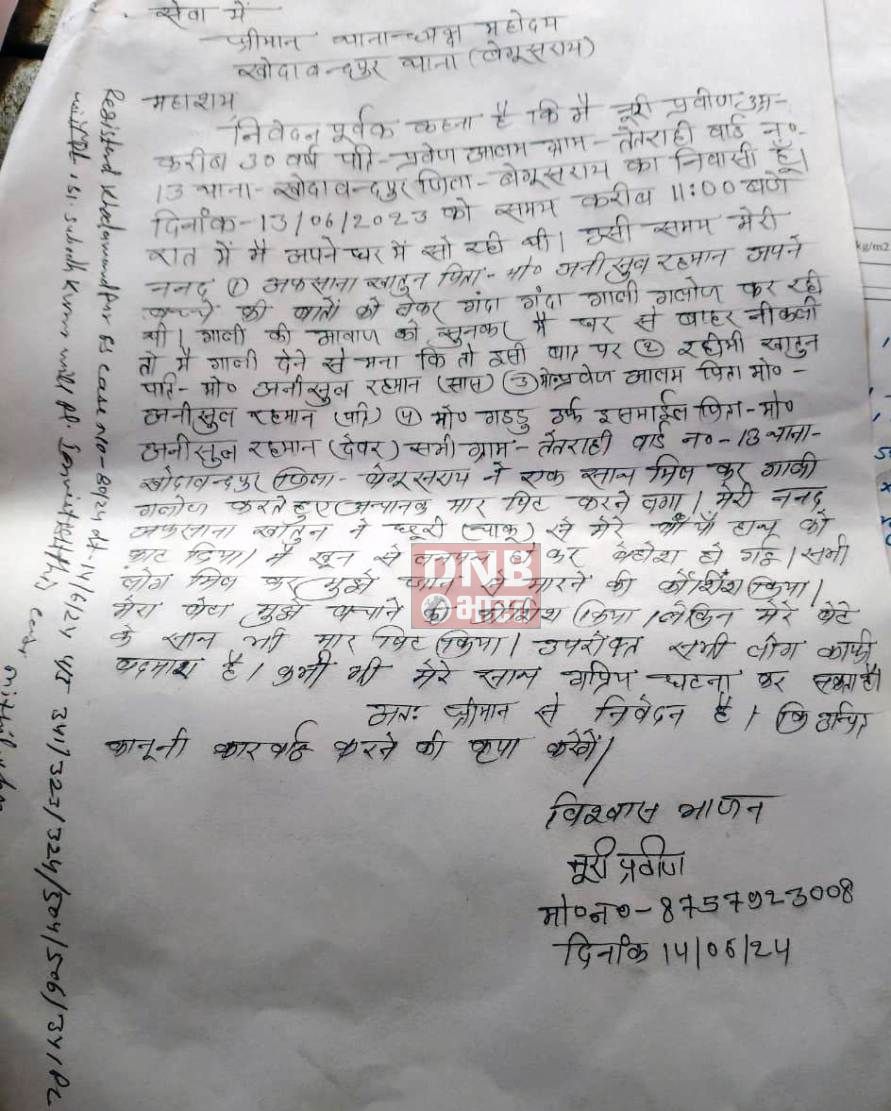 सेवा में
श्रीमान थानाध्यक्ष महोदय
खोदावन्दपुर थाना (बेगूसराय)
महाशय
निवेदन पूर्वक कहना है कि मै नूरी प्रवीण उम्र-
करीब 30 वर्ष पति- प्रवेण आलम ग्राम - तेतराही वार्ड न०-
13 थाना- खोदावन्दपुर जिला- बेगूसराय का निवासी हूँ।
दिनांक-13/06/2023 को समय करीब 11:00 बजे
रात में मै अपने घर में सो रही थी। उसी समय मेरी
ननद ① अफसाना खातुन पिता- मो० अनीसुल रहमान अपने
की बातों को लेकर गंदा गंदा गाली गलोज कर रही
थी। गाली की आवाज को सुनकर मै घर से बाहर नीकली
तो मै गाली देने से मना कि तो इसी बात पर ② रहीमी खातुन
पति- मो० अनीसुल रहमान (सास) ③ मो०प्रवेण आलम पिता मो० -
अनीसुल रहमान (पति) ④ मो० गडडु उर्फ इसमाईल पिता-मो०
अनीसुल रहमान (देवर) सभी ग्राम- तेतराही वार्ड न०-13 थाना-
खोदावन्दपुर जिला- बेगूसराय ने एक साथ मिल कर गाली
गलोज करते हुए अचानक मार पिट करने लगा। मेरी ननद
अफसाना खातुन ने छूरी (चाकू) से मेरे बाँया हाथ को
काट दिया। मै खून से कर बेहोश हो गई। सभी
लोग मिल कर मुझे जान से मारने की कोशिश किया।
मेरा बेटा मुझे बचाने की कोशिश किया। लेकिन मेरे बेटे
के साथ भी मार पिट किया। उपरोक्त सभी लोग काफी
बदमाश है। कभी भी मेरे साथ अप्रिय घटना कर सकता है।
अतः श्रीमान से निवेदन है। कि उचित
कानूनी कारवाई करने की कृपा करेगें।
विश्वास भाजन
नूरी प्रवीण
मो०न०-8757923008
दिनांक 14/06/24
Registerd Khodawandpur PS case No-89/24 dt-14/6/24 U/S 341/323/324/504/506/34 IPC
S.I. Subodh Kumar will pl. this case
DNB
भारत
kg/m2